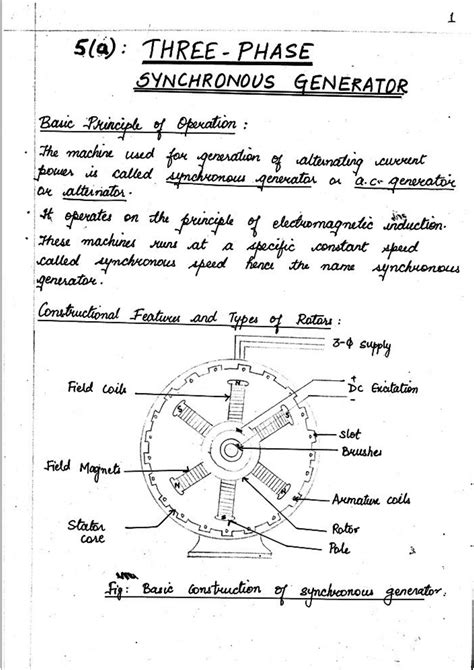 1
5(a): THREE-PHASE
SYNCHRONOUS GENERATOR
Basic Principle of Operation:
· The machine used for generation of alternating current
power is called synchronous generator or a.c. generator
or alternator.
· It operates on the principle of electromagnetic induction.
· These machines runs at a specific constant speed
called synchronous speed hence the name synchronous
generator.
Constructional Features and Types of Rotors:
3-Φ supply
Field coils
N
+
DC Excitation
-
S
S
slot
Brushes
Field Magnets
N
N
Armature coils
Stator
core
S
Rotor
Pole
3
Fig: Basic construction of synchronous generator.